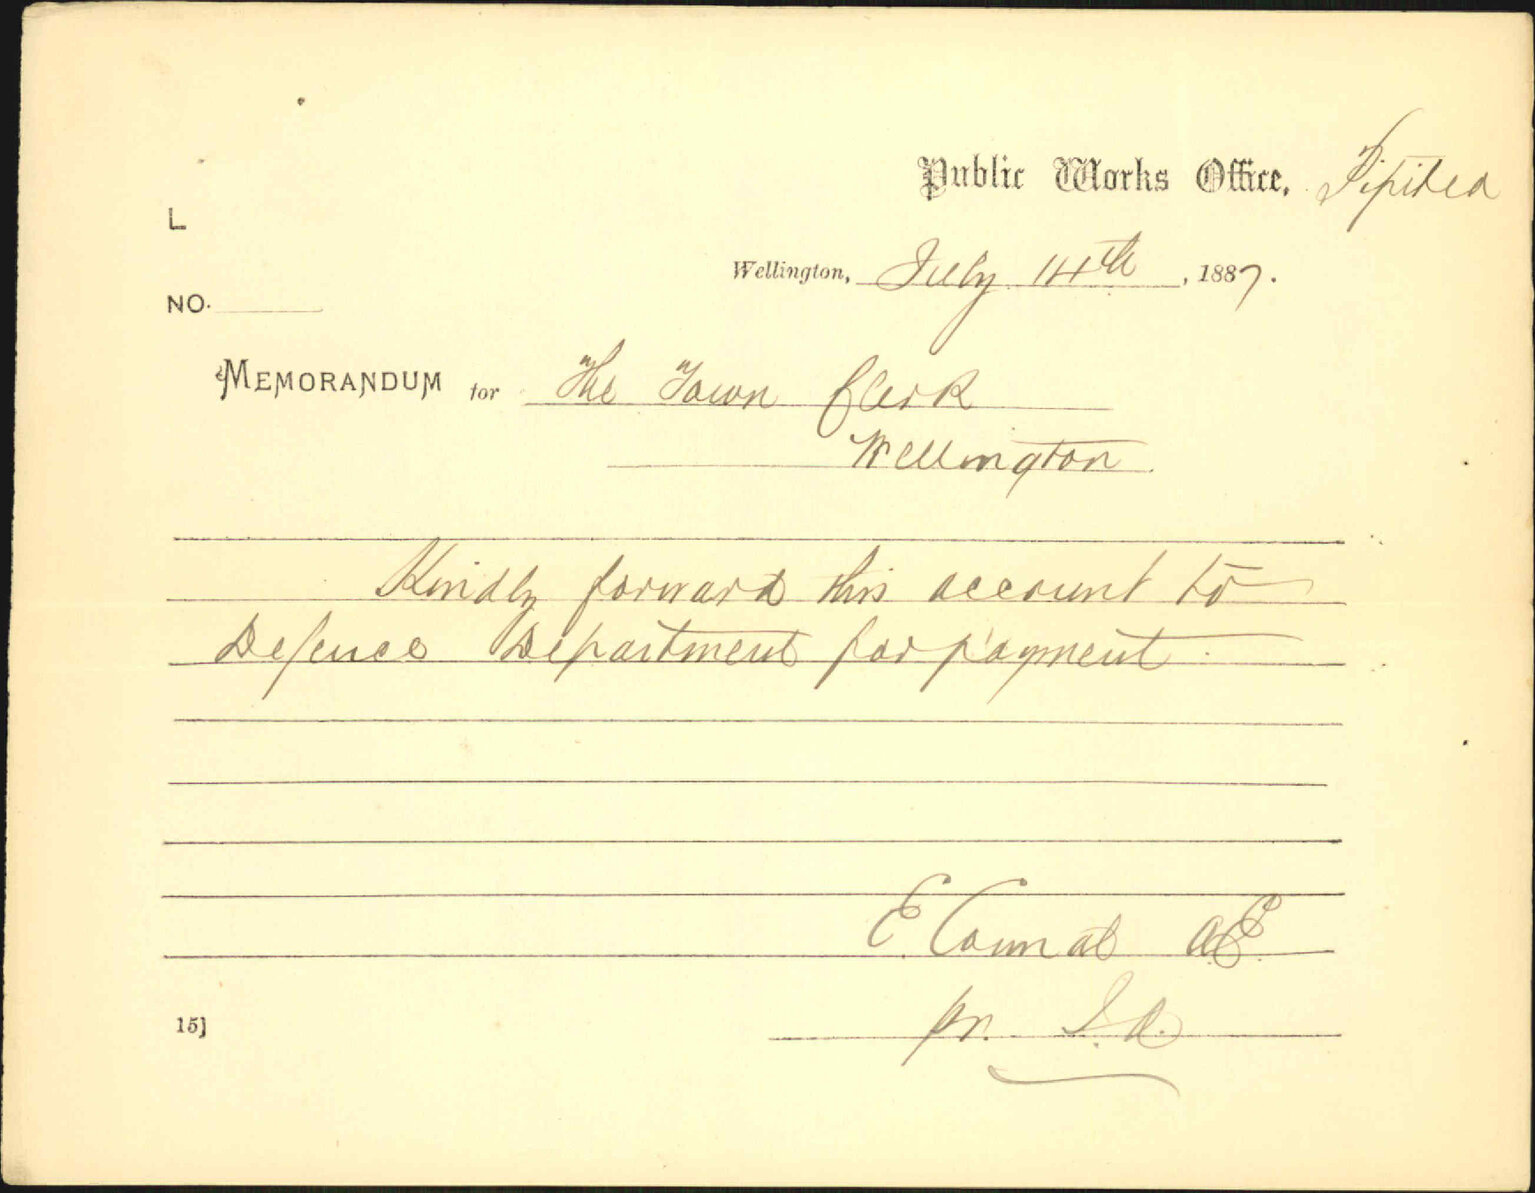 Public Works Office, Pipitea
L
Wellington, July 14th, 1887.
NO.
MEMORANDUM for The Town Clerk
Wellington.
Kindly forward this account to
Defence Department for payment.
E. Connal A.E.
pr.
15]